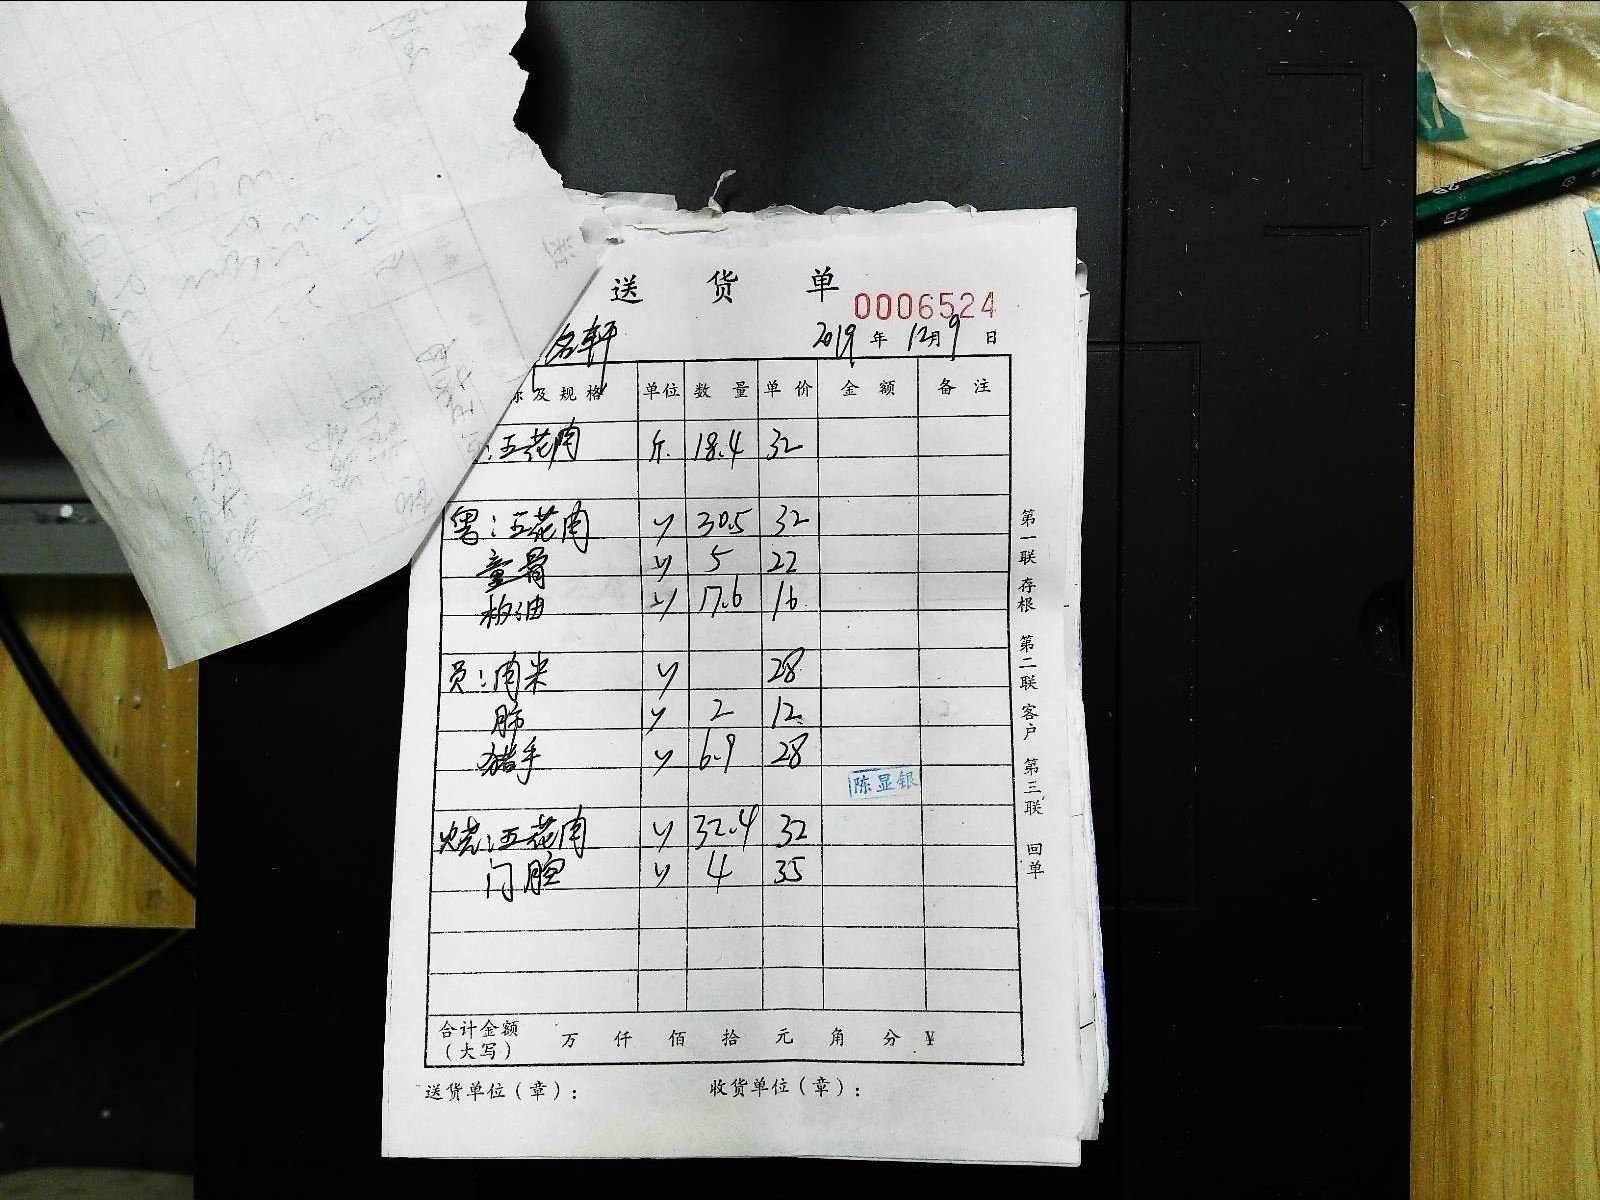 送 货 单
0006524
名轩 2019 年 12月 9 日
及规格 单位 数 量 单 价 金 额 备 注
：五花肉 斤 18.4 32
粤：五花肉 〃 30.5 32
童骨 〃 5 22
板油 〃 17.6 16
员：肉米 〃 28
肺 〃 2 12
猪手 〃 6.9 28
陈显银
烧：五花肉 〃 32.4 32
门腔 〃 4 35
合计金额（大写） 万 仟 佰 拾 元 角 分 ¥
送货单位（章）： 收货单位（章）：
第一联 存根 第二联 客户 第三联 回单
2B
2B